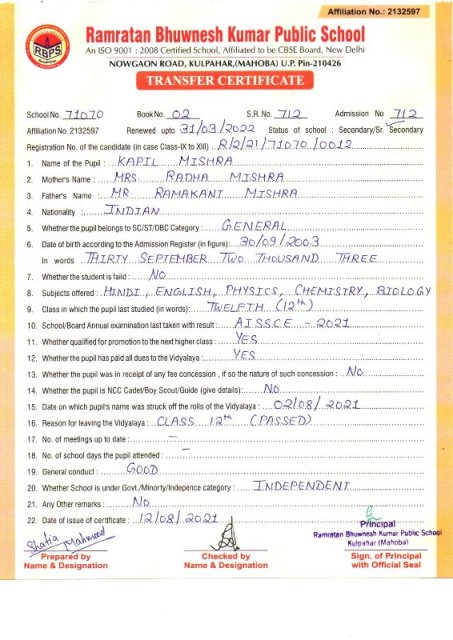 Affiliation No.: 2132597
RBPS
Ramratan Bhuwnesh Kumar Public School
An ISO 9001 : 2008 Certified School, Affiliated to be CBSE Board, New Delhi
NOWGAON ROAD, KULPAHAR,(MAHOBA) U.P. Pin-210426
TRANSFER CERTIFICATE
School No. 71070 Book No. 02 S.R. No. 712 Admission No 712
Affiliation No. 2132597 Renewed upto 31/03/2022 Status of school : Secondary/Sr. Secondary
Registration No. of the candidate (in case Class-IX to XIII) R/2/21/71070/0012
1. Name of the Pupil : KAPIL MISHRA
2. Mother's Name : MRS. RADHA MISHRA
3. Father's Name : MR. RAMAKANT MISHRA
4. Nationality : INDIAN
5. Whether the pupil belongs to SC/ST/OBC Category : GENERAL
6. Date of birth according to the Admission Register (in figure): 30/09/2003
In words THIRTY SEPTEMBER TWO THOUSAND THREE
7. Whether the student is faild : NO
8. Subjects offered : HINDI, ENGLISH, PHYSICS, CHEMISTRY, BIOLOGY
9. Class in which the pupil last studied (in words): TWELFTH (12th)
10. School/Board Annual examination last taken with result : A.I.S.S.C.E. - 2021
11. Whether qualified for promotion to the next higher class : YES
12. Whether the pupil has paid all dues to the Vidyalaya : YES
13. Whether the pupil was in receipt of any fee concession , if so the nature of such concession : NO
14. Whether the pupil is NCC Cadet/Boy Scout/Guide (give details): NO
15. Date on which pupil's name was struck off the rolls of the Vidyalaya : 02/08/2021
16. Reason for leaving the Vidyalaya : CLASS 12th (PASSED)
17. No. of meetings up to date : —
18. No. of school days the pupil attended : —
19. General conduct : GOOD
20. Whether School is under Govt./Minorty/Indepence category : INDEPENDENT
21. Any Other remarks : NO
22. Date of issue of certificate : 12/08/2021
Principal
Ramratan Bhuwnesh Kumar Public School
Kulpahar (Mahoba)
Mahmood
Prepared by Checked by Sign. of Principal
Name & Designation Name & Designation with Official Seal